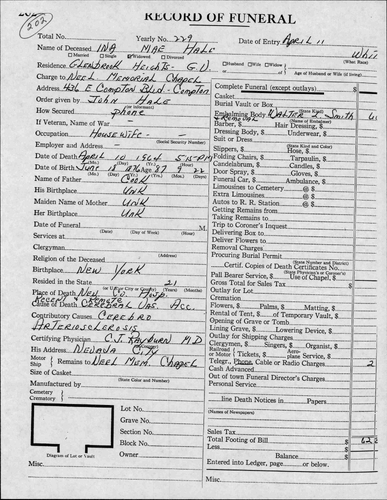 202
RECORD OF FUNERAL
Total No. Yearly No. 229 Date of Entry April 11
Name of Deceased INA MAE HALE Whi
Married Single Widowed Divorced (What Race)
Residence GLENBROOK HEIGHTS - G.V. Husband Wife Widow of Age of Husband or Wife (if living)
Charge to NEEL MEMORIAL CHAPEL
Address 436 E COMPTON BLVD - COMPTON
Order given by JOHN HALE
How Secured phone
If Veteran, Name of War
Occupation HOUSEWIFE -
(Social Security Number)
Employer and Address
Date of Death APRIL 10 1964 5:15 PM
Date of Birth JUNE 18 1876 Age 87 9 22
Name of Father COOK
His Birthplace UNK
Maiden Name of Mother UNK
Her Birthplace UNK
Date of Funeral M.
(Date) (Day of Week) (Hour)
Services at
(Address)
Clergyman
Religion of the Deceased
Birthplace NEW YORK
Resided in the State 21
(or U.S. or City or County) (Years) (Months)
Place of Death NEV. CO. HOSP.
RECENT & REMOTE
Cause of Death CEREBRAL VAS. ACC.
Contributory Causes CEREBRO
ARTERIOSCLEROSIS
Certifying Physician C.J. RAYBURN M.D.
His Address NEVADA CITY
Motor Ship Remains to NEEL MEM. CHAPEL
Size of Casket
Manufactured by
(State Color and Number)
Cemetery
Crematory
Lot No.
Grave No.
Section No.
Block No.
Owner
Diagram of Lot or Vault
Misc.
Complete Funeral (except outlays) $
Casket
Burial Vault or Box
(State Kind)
Embalming Body WALTER L. SMITH
& REMOVAL (Name of Embalmer)
Barber, $ Hair Dressing, $
Dressing, $ Underwear, $
Suit or Dress
(State Kind and Color)
Slippers, $ Hose, $
Folding Chairs, $ Tarpaulin, $
Candelabrum, $ Candles, $
Door Spray, $ Gloves, $
Funeral Car, $ Ambulance, $
Limousines to Cemetery @ $
Extra Limousines @ $
Autos to R. R. Station @ $
Getting Remains from
Taking Remains to
Trip to Coroner's Inquest
Delivering Box to
Deliver Flowers to
Removal Charges
Procuring Burial Permit
(State Number and District)
Certif. Copies of Death Certificates No.
(State Physician's or Coroner's)
Pall Bearer Service, $ Use of Chapel, $
Gross Total for Sales Tax $
Outlay for Lot $
Cremation
Flowers, $ Palms, $ Matting, $
Rental of Tent, $ of Temporary Vault, $
Opening of Grave or Tomb
Lining Grave, $ Lowering Device, $
Outlay for Shipping Charges
Clergymen, $ Singers, $ Organist, $
Railroad or Motor Tickets, $ Aeroplane Service, $
Telegr., Phone, Cable or Radio Charges 2
Cash Advanced
Out of town Funeral Director's Charges
Personal Service
line Death Notices in Papers
(Names of Newspapers)
Sales Tax
Total Footing of Bill $ 62
Less $
Balance $
Entered into Ledger, page or below.
Misc.